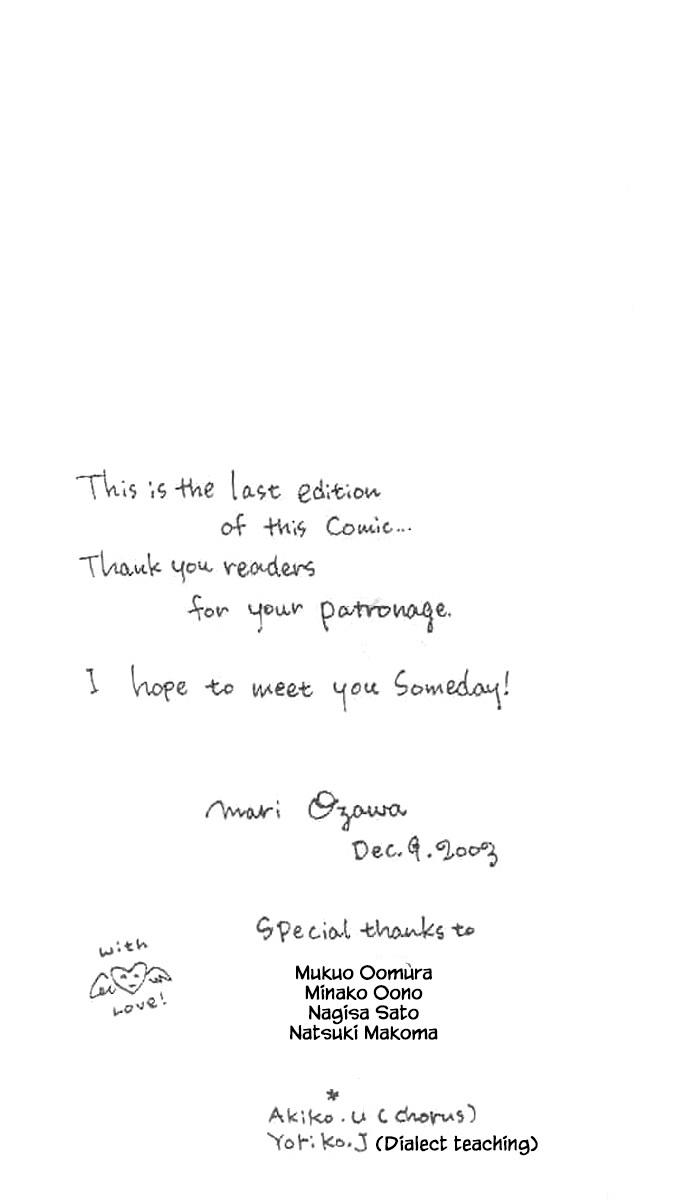 This is the last edition
of this Comic...
Thank you readers
for your patronage.
I hope to meet you Someday!
Mari Ozawa
Dec. 9. 2003
Special thanks to
with
Love!
Mukuo Oomura
Minako Oono
Nagisa Sato
Natsuki Makoma
*
Akiko. U (chorus)
Yoriko. J (Dialect teaching)